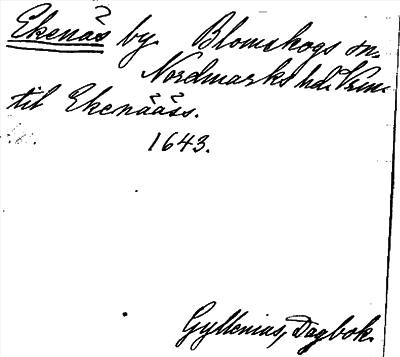 Ekenäs by Blomskogs sn.
Nordmarks hd. Vrml.
til Ekenääss.
1643.
Gyllenius, Dagbok.